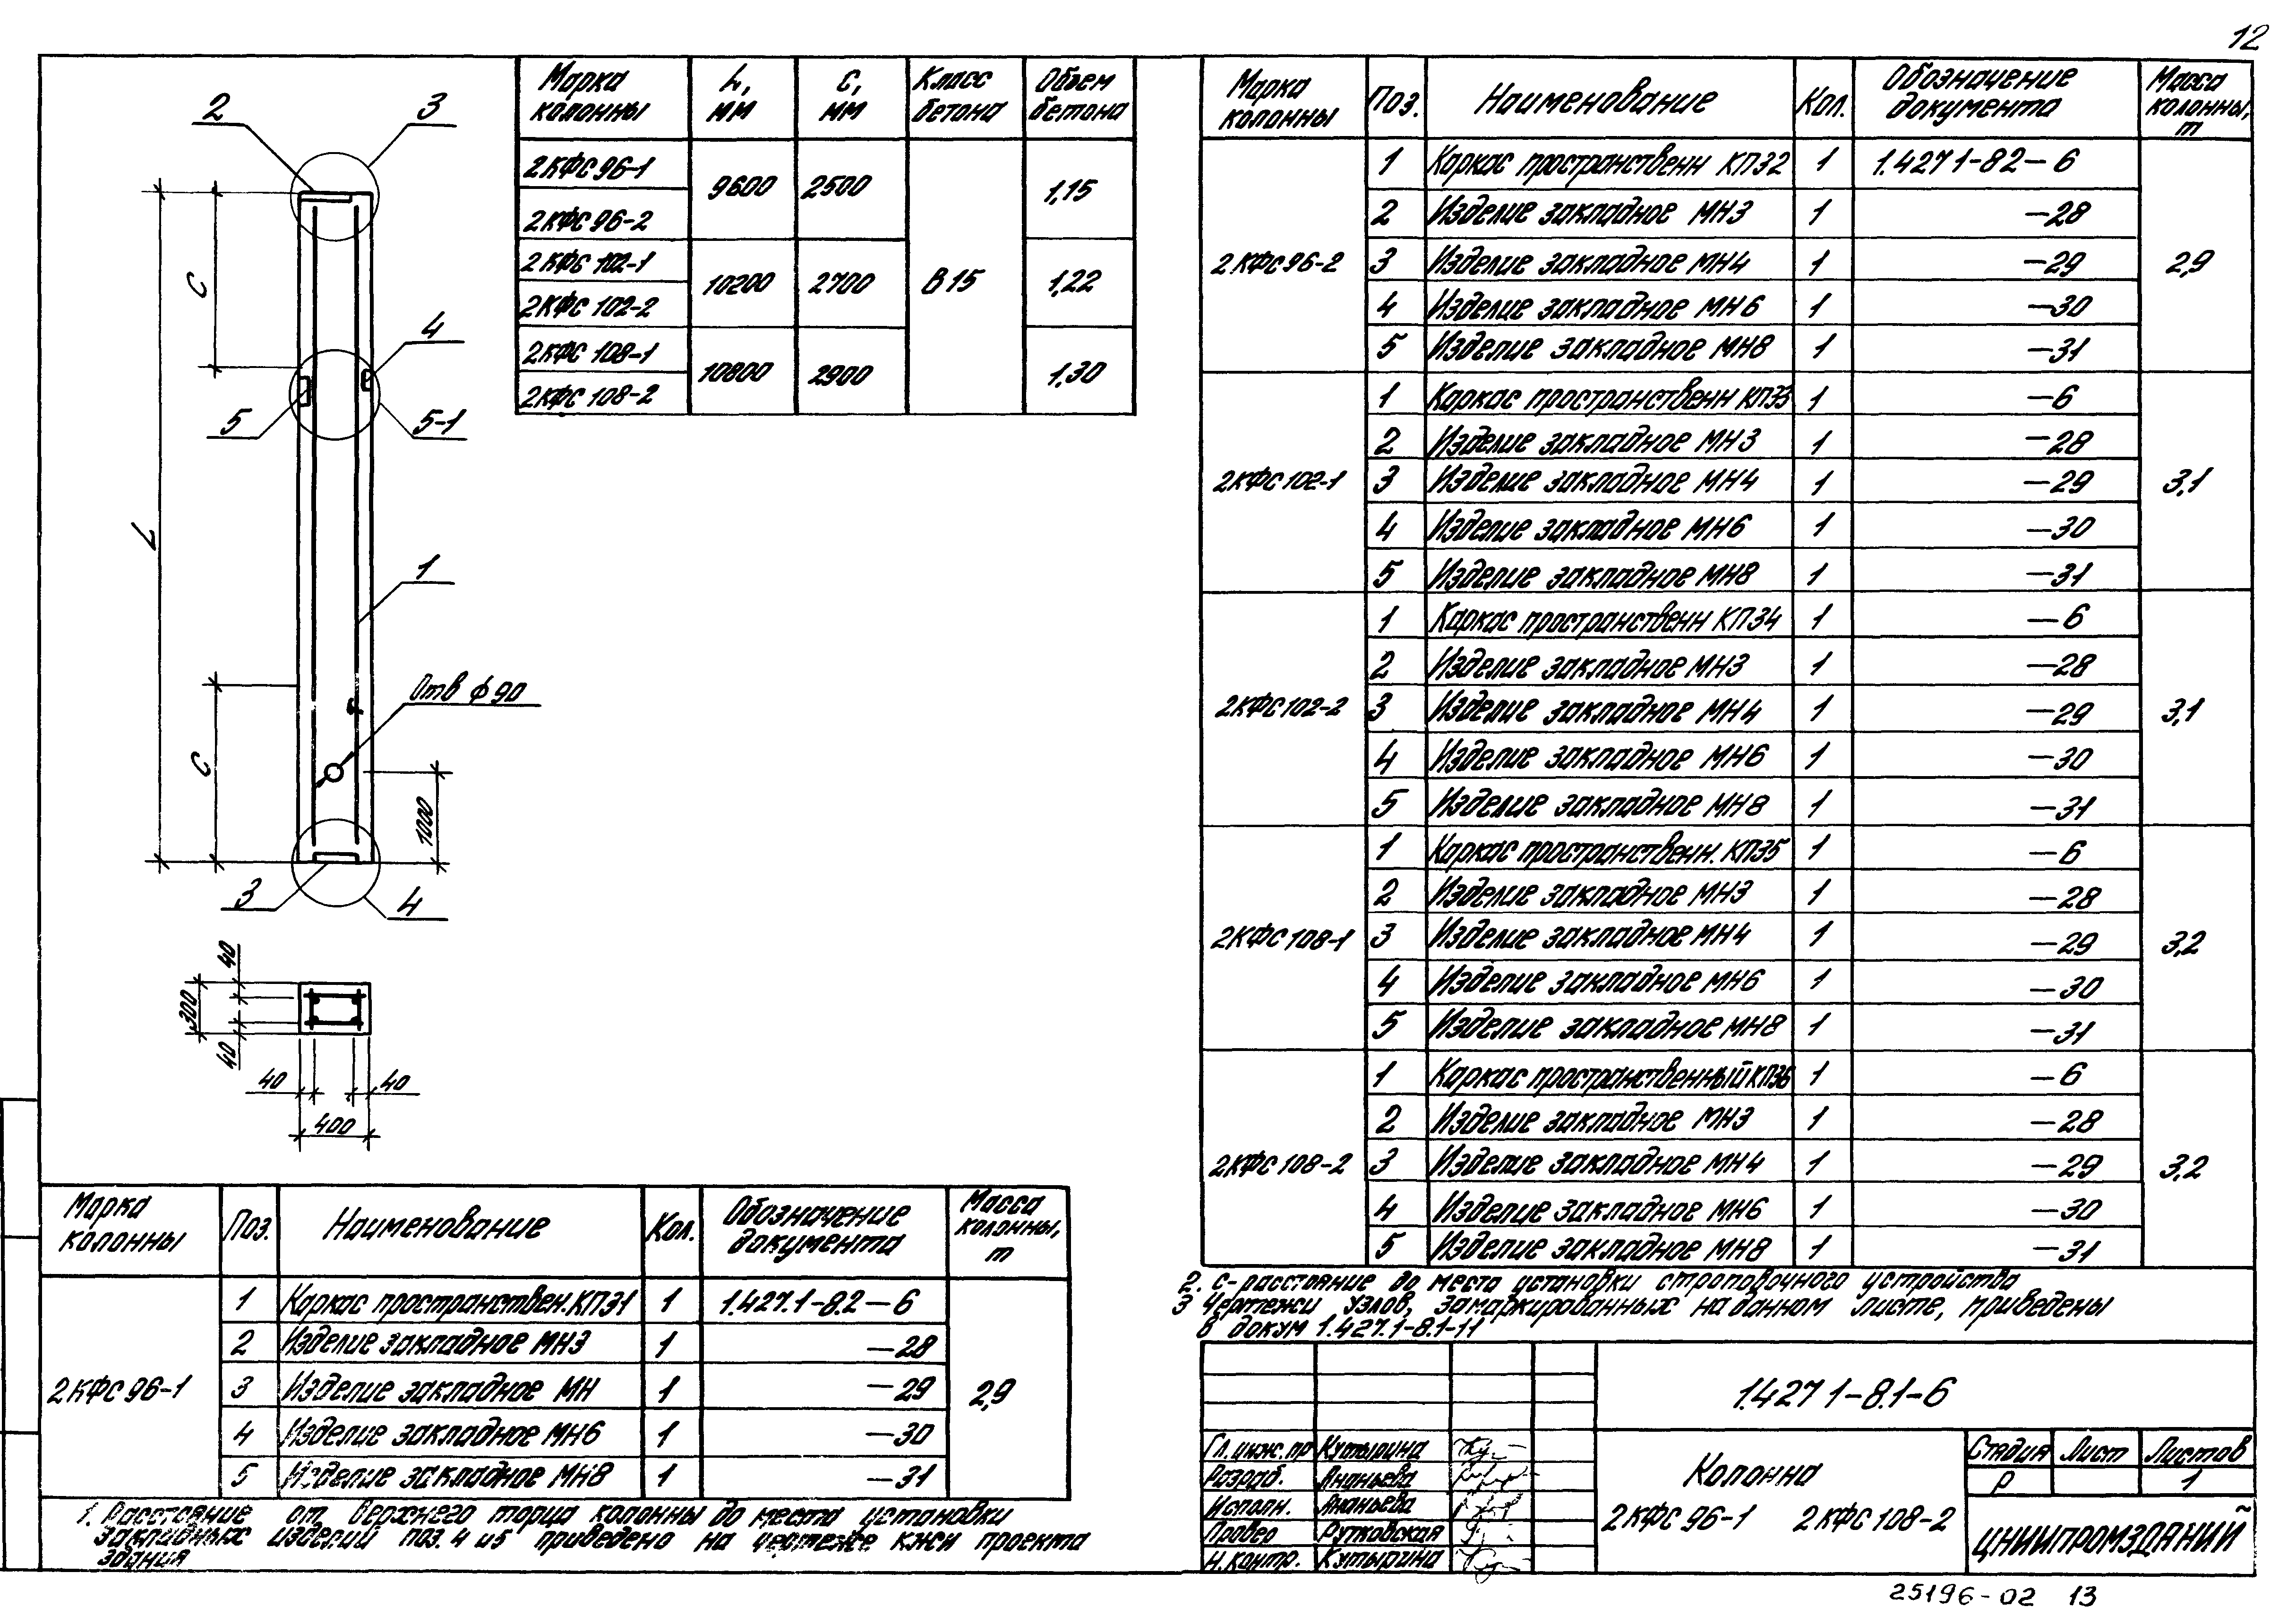 12
2
3
C
4
5
5-1
L
1
Отв ф90
C
1000
3
4
40
300
40
40
40
400
Марка колонны | L, мм | C, мм | Класс бетона | Объем бетона
2КФС 96-1 | 9600 | 2500 | В15 | 1,15
2КФС 96-2
2КФС 102-1 | 10200 | 2700 | 1,22
2КФС 102-2
2КФС 108-1 | 10800 | 2900 | 1,30
2КФС 108-2
Марка колонны | Поз. | Наименование | Кол. | Обозначение документа | Масса колонны, т
2КФС 96-1 | 2,9
1 | Каркас пространствен. КП31 | 1 | 1.427.1-8.2-6
2 | Изделие закладное МН3 | 1 | -28
3 | Изделие закладное МН | 1 | -29
4 | Изделие закладное МН6 | 1 | -30
5 | Изделие закладное МН8 | 1 | -31
1. Расстояние от верхнего торца колонны до места установки
закладных изделий поз. 4 и 5 приведено на чертеже КЖИ проекта
здания
Марка колонны | Поз. | Наименование | Кол. | Обозначение документа | Масса колонны, т
2КФС 96-2 | 2,9
1 | Каркас пространственн КП32 | 1 | 1.427 1-8 2-6
2 | Изделие закладное МН3 | 1 | -28
3 | Изделие закладное МН4 | 1 | -29
4 | Изделие закладное МН6 | 1 | -30
5 | Изделие закладное МН8 | 1 | -31
2КФС 102-1 | 3,1
1 | Каркас пространственн КП33 | 1 | -6
2 | Изделие закладное МН3 | 1 | -28
3 | Изделие закладное МН4 | 1 | -29
4 | Изделие закладное МН6 | 1 | -30
5 | Изделие закладное МН8 | 1 | -31
2КФС 102-2 | 3,1
1 | Каркас пространственн КП34 | 1 | -6
2 | Изделие закладное МН3 | 1 | -28
3 | Изделие закладное МН4 | 1 | -29
4 | Изделие закладное МН6 | 1 | -30
5 | Изделие закладное МН8 | 1 | -31
2КФС 108-1 | 3,2
1 | Каркас пространственн. КП35 | 1 | -6
2 | Изделие закладное МН3 | 1 | -28
3 | Изделие закладное МН4 | 1 | -29
4 | Изделие закладное МН6 | 1 | -30
5 | Изделие закладное МН8 | 1 | -31
2КФС 108-2 | 3,2
1 | Каркас пространственный КП36 | 1 | -6
2 | Изделие закладное МН3 | 1 | -28
3 | Изделие закладное МН4 | 1 | -29
4 | Изделие закладное МН6 | 1 | -30
5 | Изделие закладное МН8 | 1 | -31
2. С-расстояние до места установки строповочного устройства
3 Чертежи узлов, замаркированных на данном листе, приведены
в докум 1.427.1-8.1-11
1.427 1-8.1-6
Гл. инж. пр Кутырина
Разраб. Ананьева
Исполн. Ананьева
Провер Рутковская
Н. контр. Кутырина
Колонна
2КФС 96-1 2КФС 108-2
Стадия Лист Листов
Р 1
ЦНИИПРОМЗДАНИЙ
25196-02 13